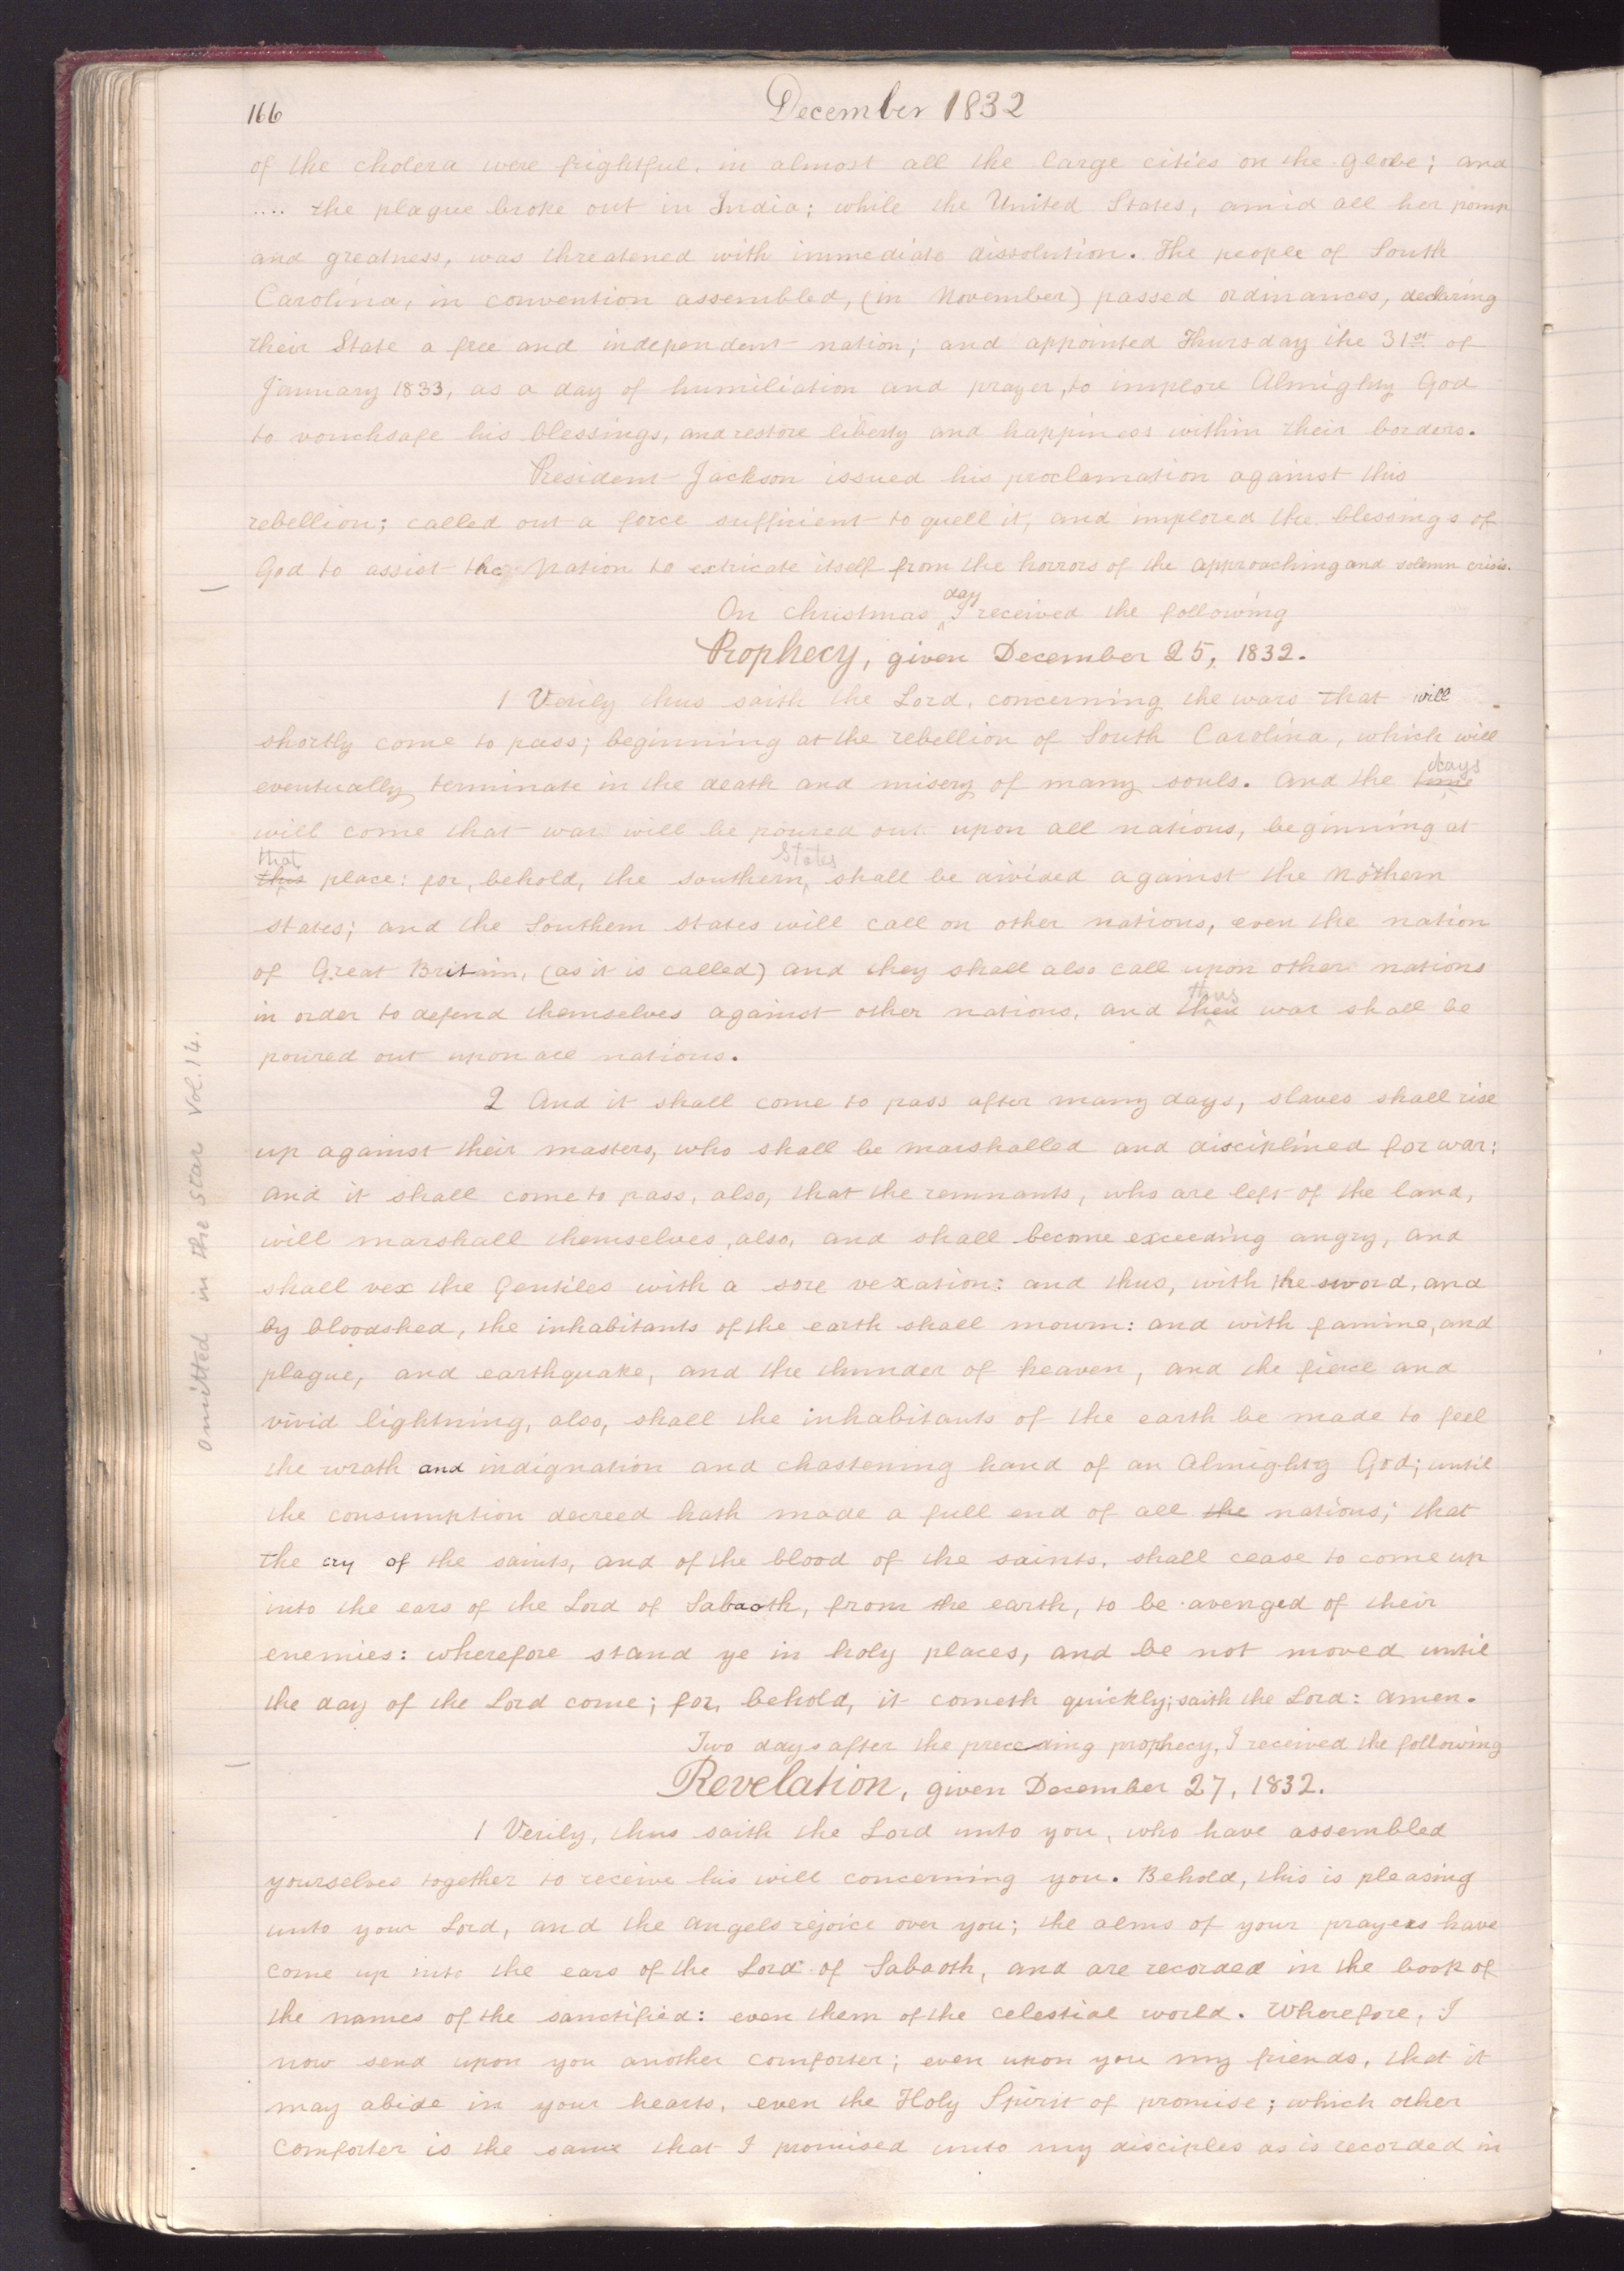 166
December 1832
of the cholera were frightful, in almost all the large cities on the globe; and
.... the plague broke out in India; while the United States, amid all her pomp
and greatness, was threatened with immediate dissolution. The people of South
Carolina, in convention assembled, (in November) passed ordinances, declaring
their State a free and independent nation; and appointed Thursday the 31st of
January 1833, as a day of humiliation and prayer, to implore Almighty God
to vouchsafe his blessings, and restore liberty and happiness within their borders.
President Jackson issued his proclamation against this
rebellion; called out a force sufficient to quell it, and implored the blessings of
God to assist the Nation to extricate itself from the horrors of the approaching and solemn crisis.
On Christmas day I received the following
Prophecy, given December 25, 1832.
1 Verily thus saith the Lord, concerning the wars that will
shortly come to pass; beginning at the rebellion of South Carolina, which will
eventually terminate in the death and misery of many souls. And the time days
will come that war will be poured out upon all nations, beginning at
this that place: for, behold, the southern States shall be divided against the Nothern
states; and the Southern states will call on other nations, even the nation
of Great Britain, (as it is called) and they shall also call upon other nations
in order to defend themselves against other nations, and then thus war shall be
poured out upon all nations.
2 And it shall come to pass after many days, slaves shall rise
up against their masters, who shall be marshalled and disciplined for war:
and it shall come to pass, also, that the remnants, who are left of the land,
will marshall themselves, also, and shall become exceeding angry, and
shall vex the Gentiles with a sore vexation: and thus, with the sword, and
by bloodshed, the inhabitants of the earth shall mourn: and with famine, and
plague, and earthquake, and the thunder of heaven, and the fierce and
vivid lightning, also, shall the inhabitants of the earth be made to feel
the wrath and indignation and chastening hand of an Almighty God; until
the consumption decreed hath made a full end of all the nations; that
the cry of the saints, and of the blood of the saints, shall cease to come up
into the ears of the Lord of Sabaoth, from the earth, to be avenged of their
enemies: wherefore stand ye in holy places, and be not moved until
the day of the Lord come; for, behold, it cometh quickly; saith the Lord: Amen.
omitted in the Star Vol. 14.
Two days after the preceding prophecy, I received the following
Revelation, given December 27, 1832.
1 Verily, thus saith the Lord unto you, who have assembled
yourselves together to receive his will concerning you. Behold, this is pleasing
unto your Lord, and the angels rejoice over you; the alms of your prayers have
come up into the ears of the Lord of Sabaoth, and are recorded in the book of
the names of the sanctified: even them of the celestial world. Wherefore, I
now send upon you another comforter; even upon you my friends, that it
may abide in your hearts, even the Holy Spirit of promise; which other
Comforter is the same that I promised unto my disciples as is recorded in